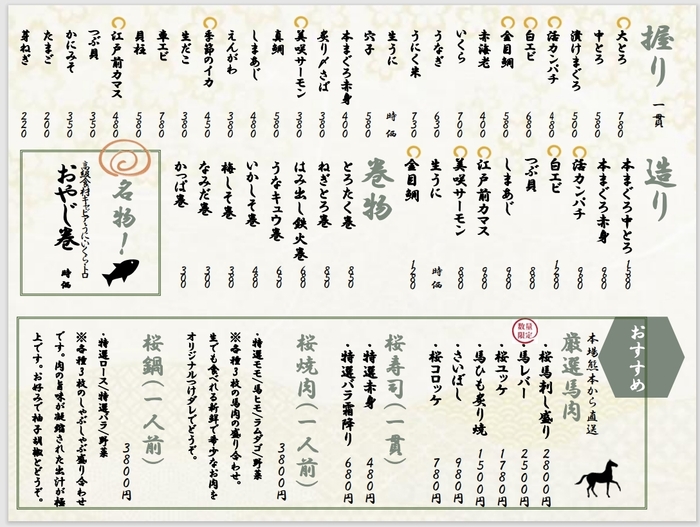 握り 一貫
大とろ 780
中とろ 580
漬けまぐろ 500
活カンパチ 480
白エビ 680
金目鯛 580
赤海老 400
いくら 700
うなぎ 630
うに軍艦
生うに 時価
穴子 580
本まぐろ赤身 400
炙り〆さば 380
美咲サーモン 380
真鯛 580
しまあじ 480
えんがわ 380
季節のイカ 430
生だこ 380
車エビ 780
貝柱 580
江戸前カマス 480
つぶ貝 350
かにみそ 350
たまご 200
芽ねぎ 220
造り
本まぐろ中とろ
本まぐろ赤身 980
活カンパチ 980
白エビ
つぶ貝
しまあじ 980
江戸前カマス 980
美咲サーモン 880
生うに 時価
金目鯛
巻物
とろたく巻 850
ねぎとろ巻 850
はみ出し鉄火巻 680
うなキュウ巻 680
いかしそ巻 480
梅しそ巻 380
なみだ巻 380
かっぱ巻 380
名物!
おやじ巻 時価
おすすめ
本場熊本から直送
厳選馬肉
桜馬刺し盛り 2800円
数量限定
・馬レバー 2500円
・桜ユッケ 1780円
・馬ひも炙り焼 1500円
・さいぼし 980円
・桜コロッケ 780円
桜寿司(一貫)
・特選赤身 480円
・特選バラ霜降り 680円
桜焼肉(一人前)
3800円
・特選モモ/馬ヒモ/ラムダゴ/野菜
※各種3枚の馬肉の盛り合わせ。
生でも食べれる新鮮で希少なお肉を
オリジナルつけダレでどうぞ。
桜鍋(一人前)
3800円
・特選ロース/特選バラ/野菜
※各種3枚のしゃぶしゃぶ盛り合わせ
です。肉の旨味が凝縮された出汁が極
上です。お好みで柚子胡椒とどうぞ。